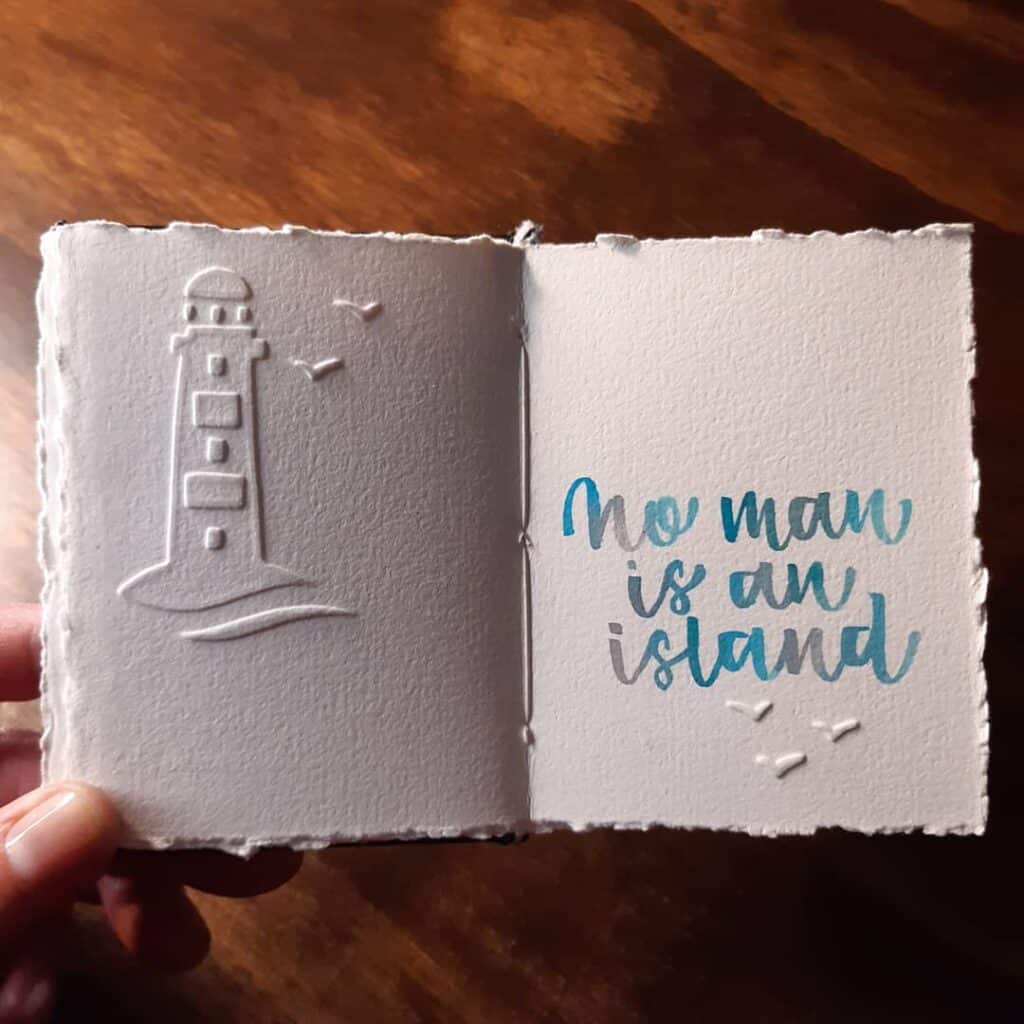 No man
is an
island